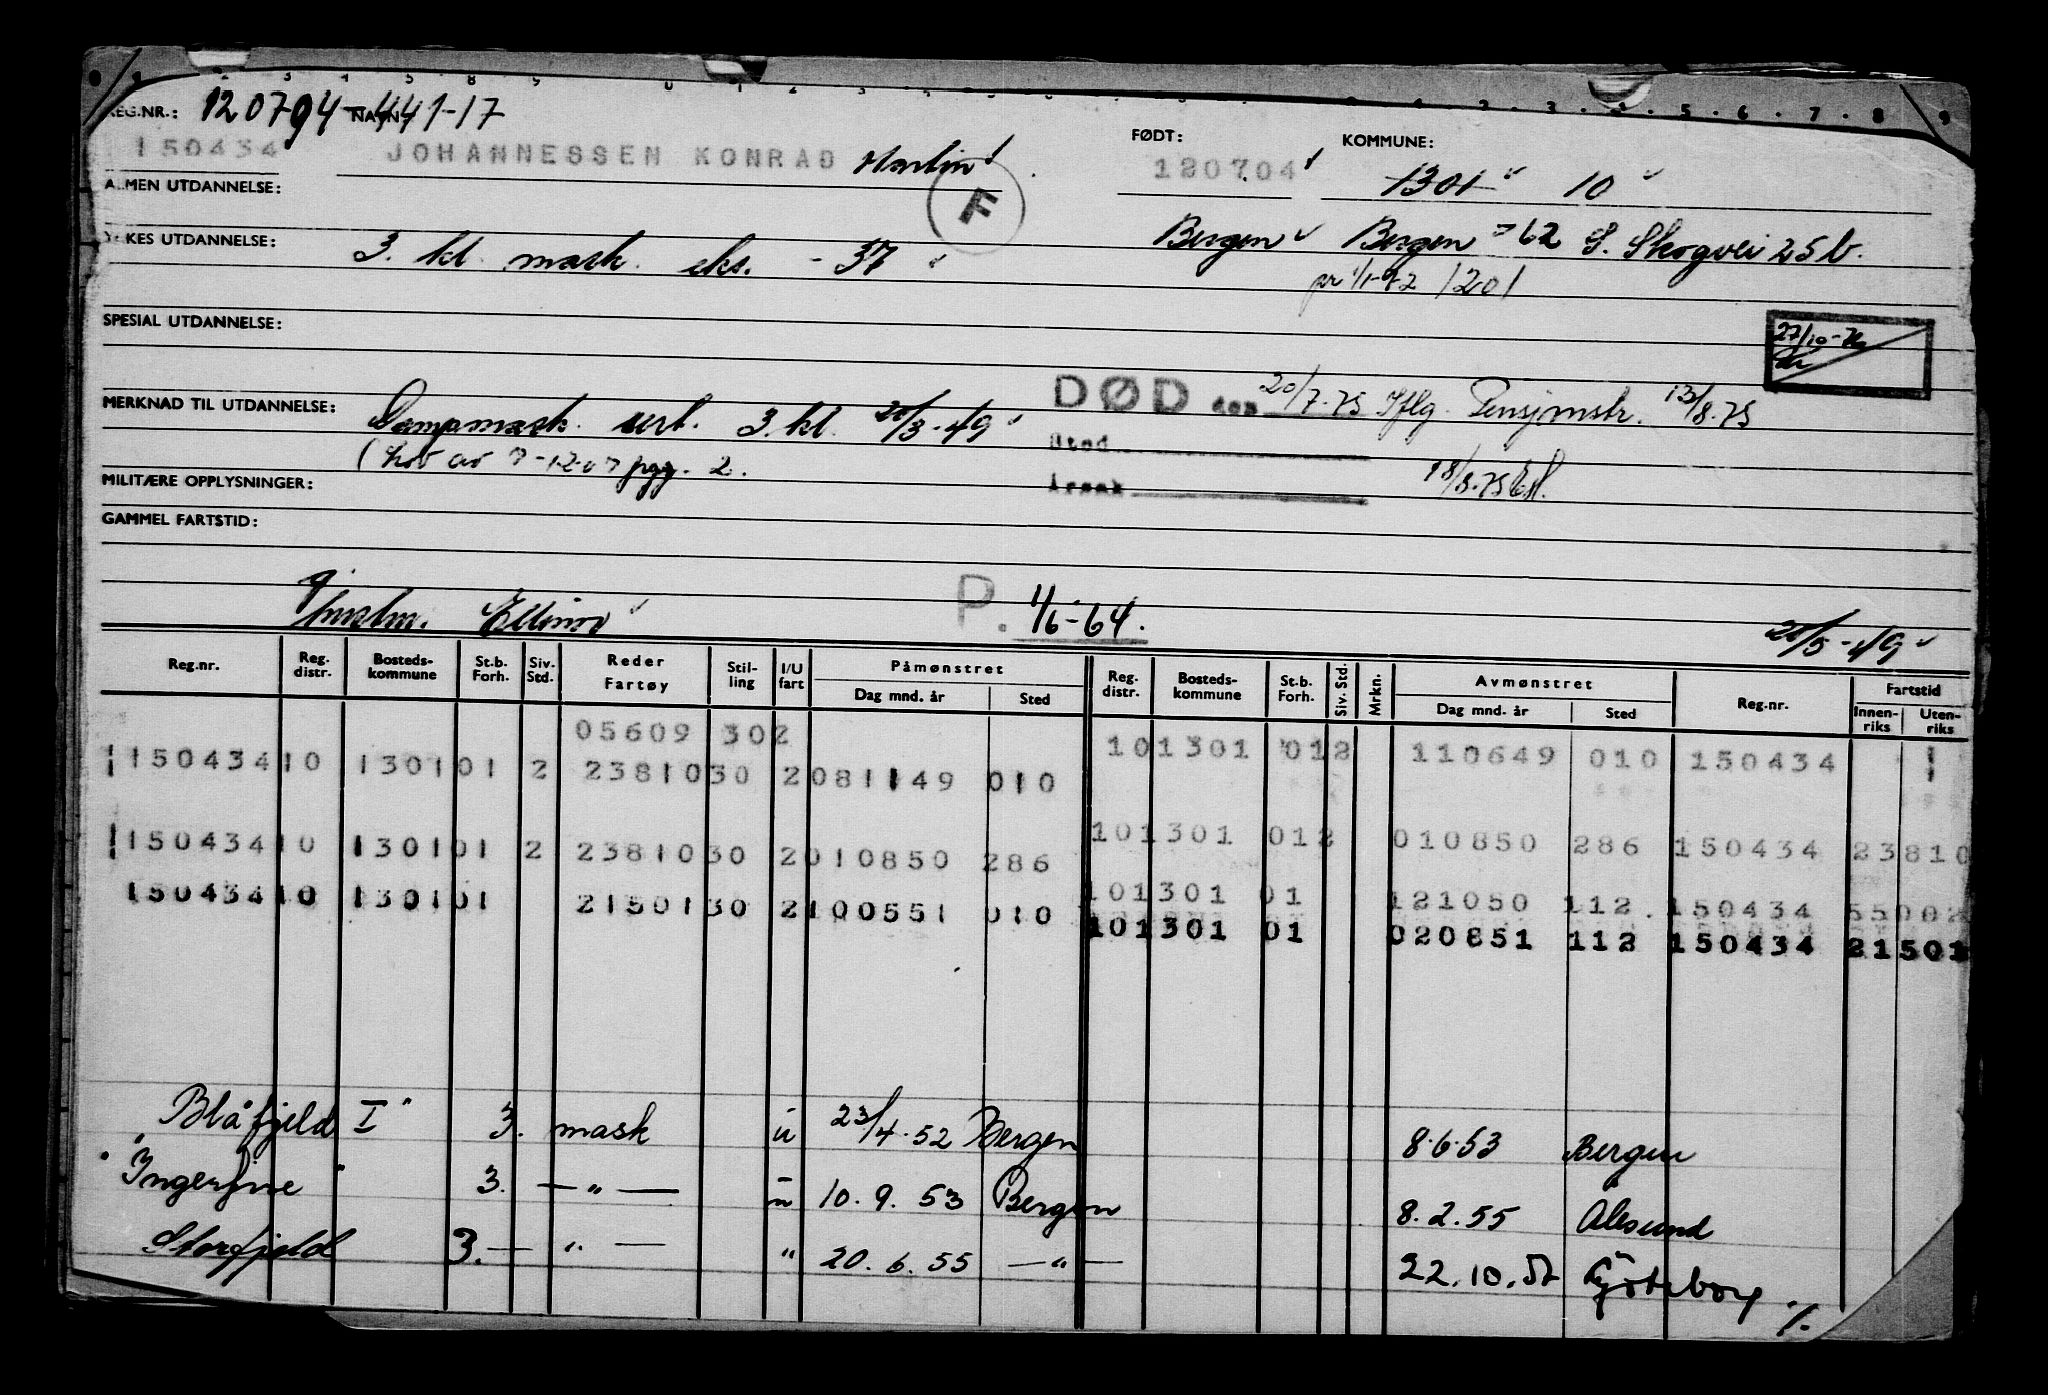 REG.NR.: 120794-441-17 NAVN
150434 JOHANNESSEN KONRAD Martin
FØDT: 120704
KOMMUNE: 1301 10
F
ALMEN UTDANNELSE:
Bergen Bergen -62 S. Skogvei 25 b.
YRKES UTDANNELSE: 3. kl. mask. eks. - 37
pr 1/1-72 1201
SPESIAL UTDANNELSE:
27/10-76
MERKNAD TIL UTDANNELSE: Dampmask. sert. 3. kl. 20/3-49
(Lov av 7-12-07 pgg. 2.
DØD den 20/7.75 Iflg. Pensjonstr. 13/8.75
Sted
Årsak
18/8.75
MILITÆRE OPPLYSNINGER:
GAMMEL FARTSTID:
g.
Hustru. Ellinor
P. 1/6-64.
20/5-49
Reg.nr. Reg. distr. Bosteds-kommune St.b. Forh. Siv. Std. Reder Fartøy Stil-ling I/U fart Påmønstret Dag mnd. år Sted Reg. distr. Bosteds-kommune St.b. Forh. Siv. Std. Mrkn. Avmønstret Dag mnd. år Sted Reg.nr. Fartstid Innen-riks Uten-riks
05609 302 101301 012 110649 010 150434
150434 10 1301 01 2 23810 30 2 081149 010
101301 012 010850 286 150434 23810
150434 10 1301 01 2 23810 30 2 010850 286
101301 01 121050 112 150434 55002
150434 10 1301 01 21501 30 2 100551 010
101301 01 020851 112 150434 21501
Blåfjeld I" 3. mask u 23/4.52 Bergen 8.6.53 Bergen
"Ingerfire" 3. —"— u 10.9.53 Bergen 8.2.55 Ålesund
Storfjeld 3. —"— " 20.6.55 —"— 22.10.57 Göteborg ./.